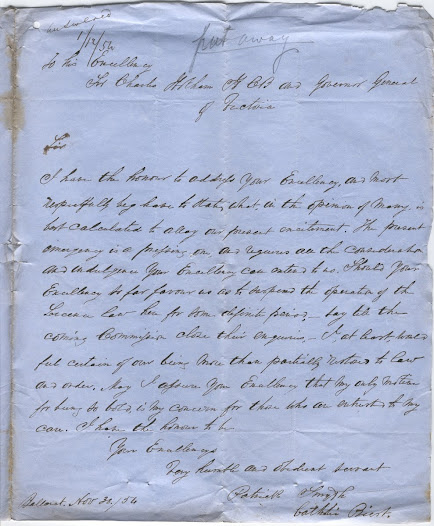 answered
1/12/54
put away
To his Excellency
Sir Charles Hotham K C B and Governor General
of Victoria
Sir
I have the honour to address Your Excellency, and most
respectfully beg leave to state, what, in the opinion of many is
best calculated to allay our present excitement. The present
emergency is a pressing one and requires all the consideration
and indulgence Your Excellency can extend to us. Should Your
Excellency so far favour us as to suspend the operation of the
Licence law here for some definite period, – say till the
coming Commission close their enquiries, – I at least, would
feel certain of our being more than partially restored to law
and order. May I assure Your Excellency that my only motive
for being so bold, is my concern for those who are entrusted to my
care. I have the honour to be
Your Excellencys
Very humble and obedient servant
Patrick Smyth
Catholic Priest.
Ballarat. Nov 30/54